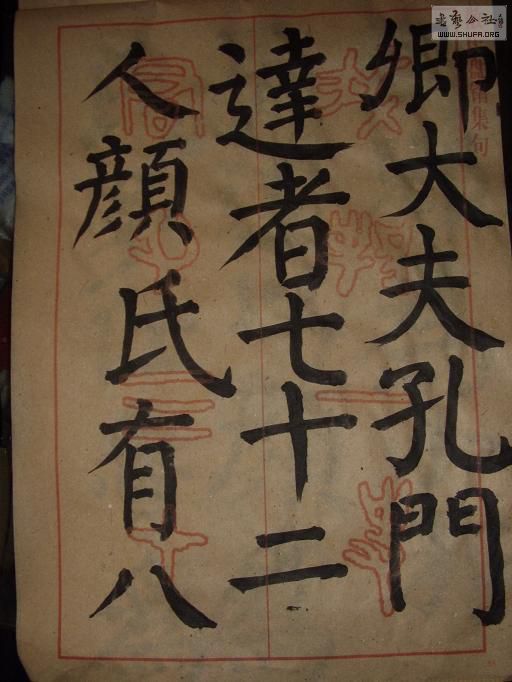 卿大夫孔門
達者七十二
人顏氏有八
集句
書藝公社
WWW.SHUFA.ORG